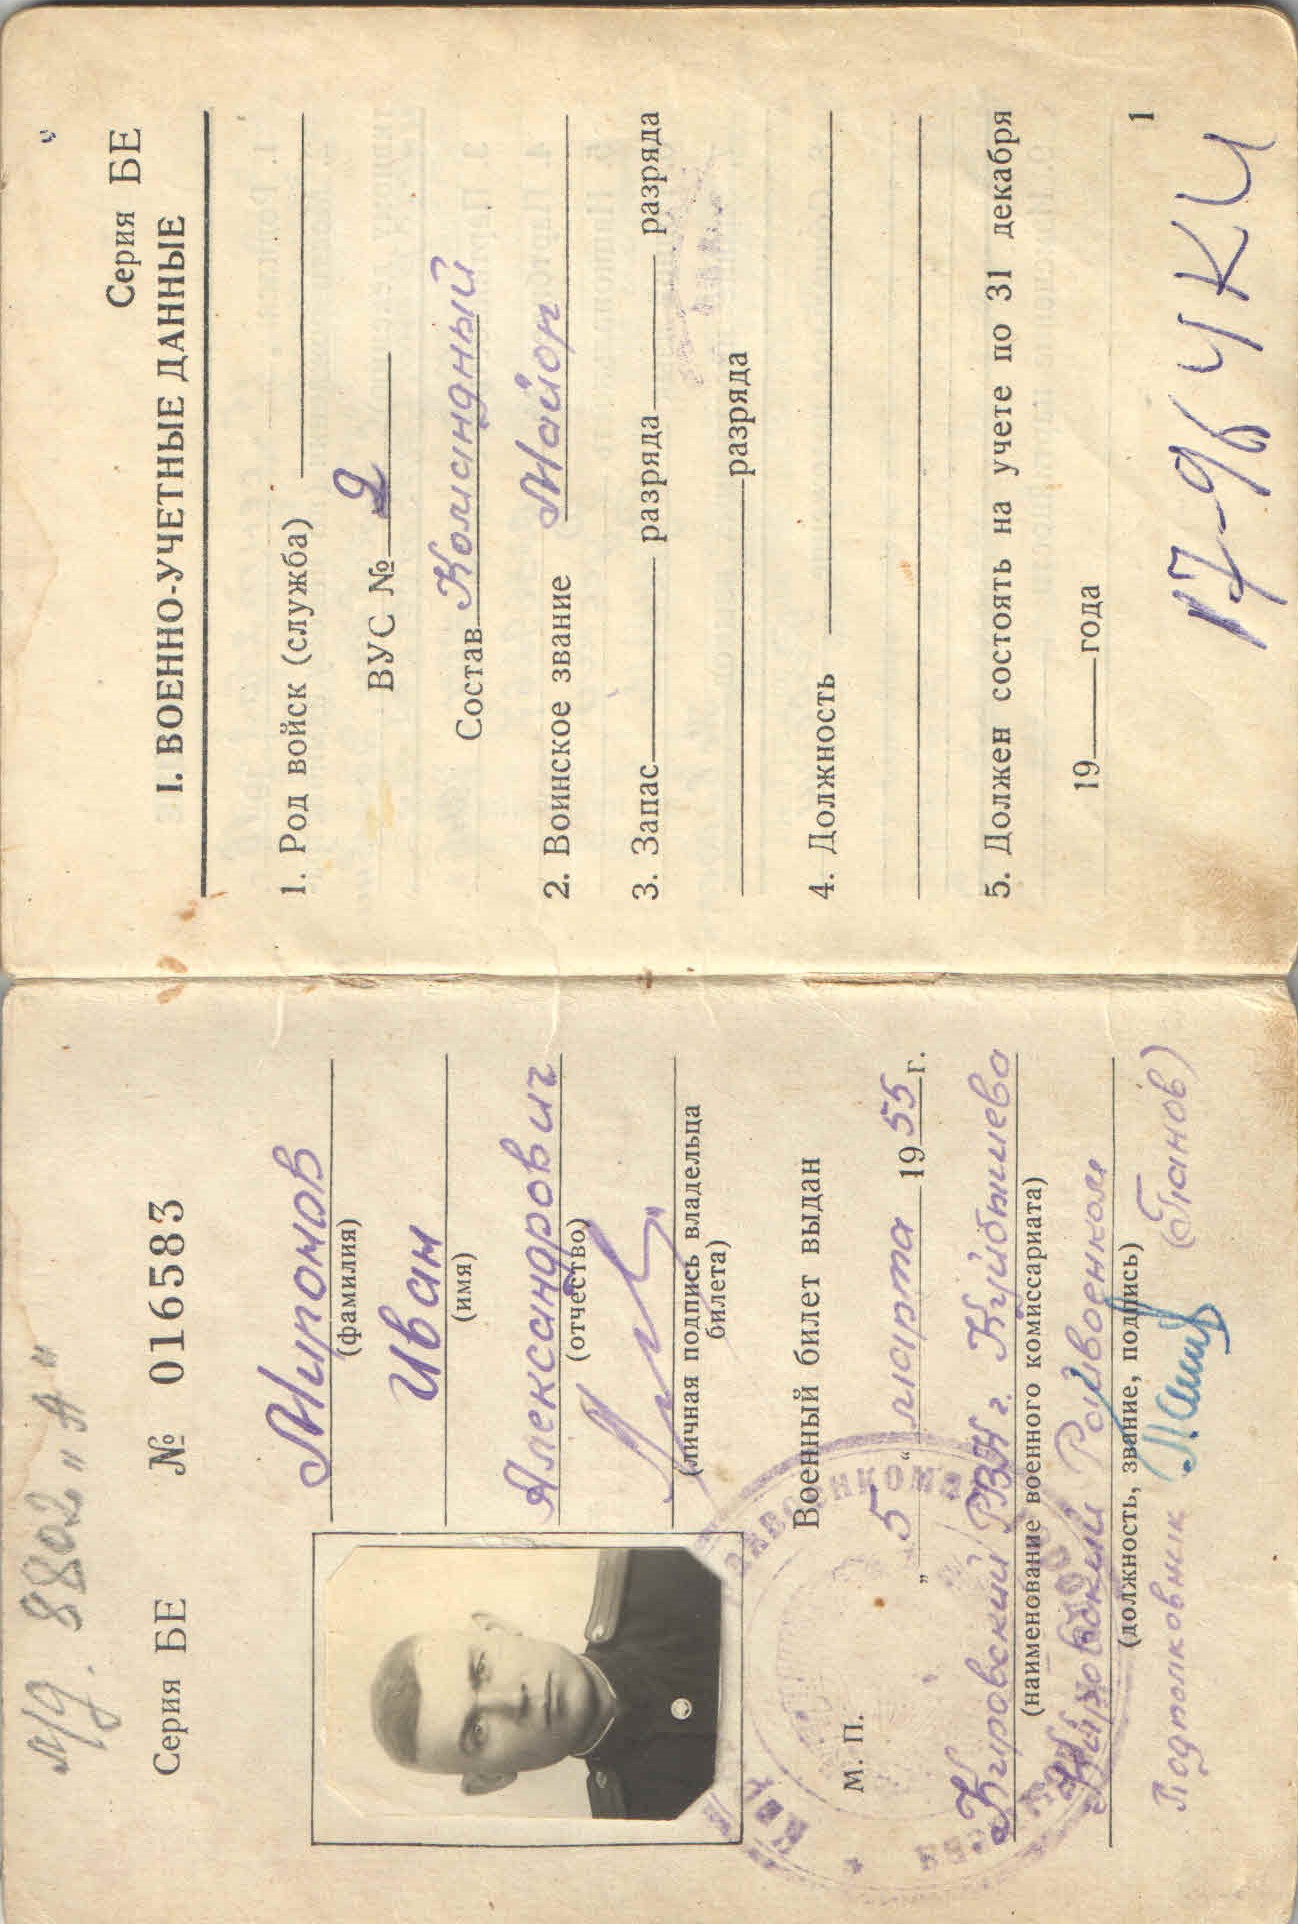 л/д. 8802 "А"
Серия БЕ № 016583
Миронов
(фамилия)
Иван
(имя)
Александрович
(отчество)
(личная подпись владельца
билета)
Военный билет выдан
М. П.
„5“ марта 1955 г.
Кировский РВК г. Куйбышева
(наименование военного комиссариата)
Кировский Райвоенком
(должность, звание, подпись)
Подполковник (Панов)
Серия БЕ
I. ВОЕННО-УЧЕТНЫЕ ДАННЫЕ
1. Род войск (служба)
ВУС № 2
Состав Командный
2. Воинское звание Майор
3. Запас разряда разряда
разряда
4. Должность
5. Должен состоять на учете по 31 декабря
19 года
1